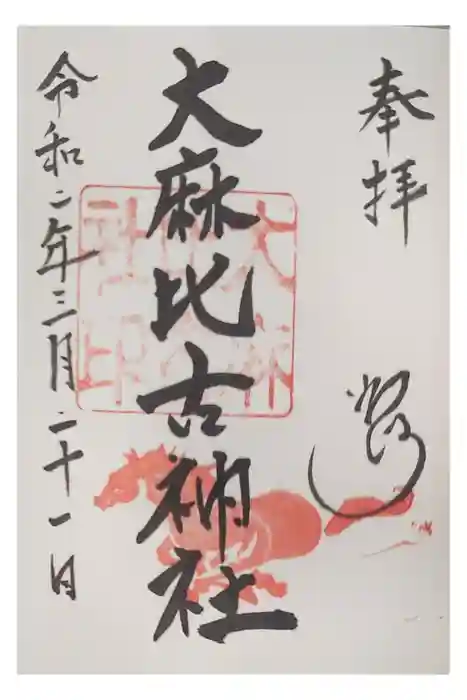 奉拝
大麻比古神社
令和二年三月二十一日